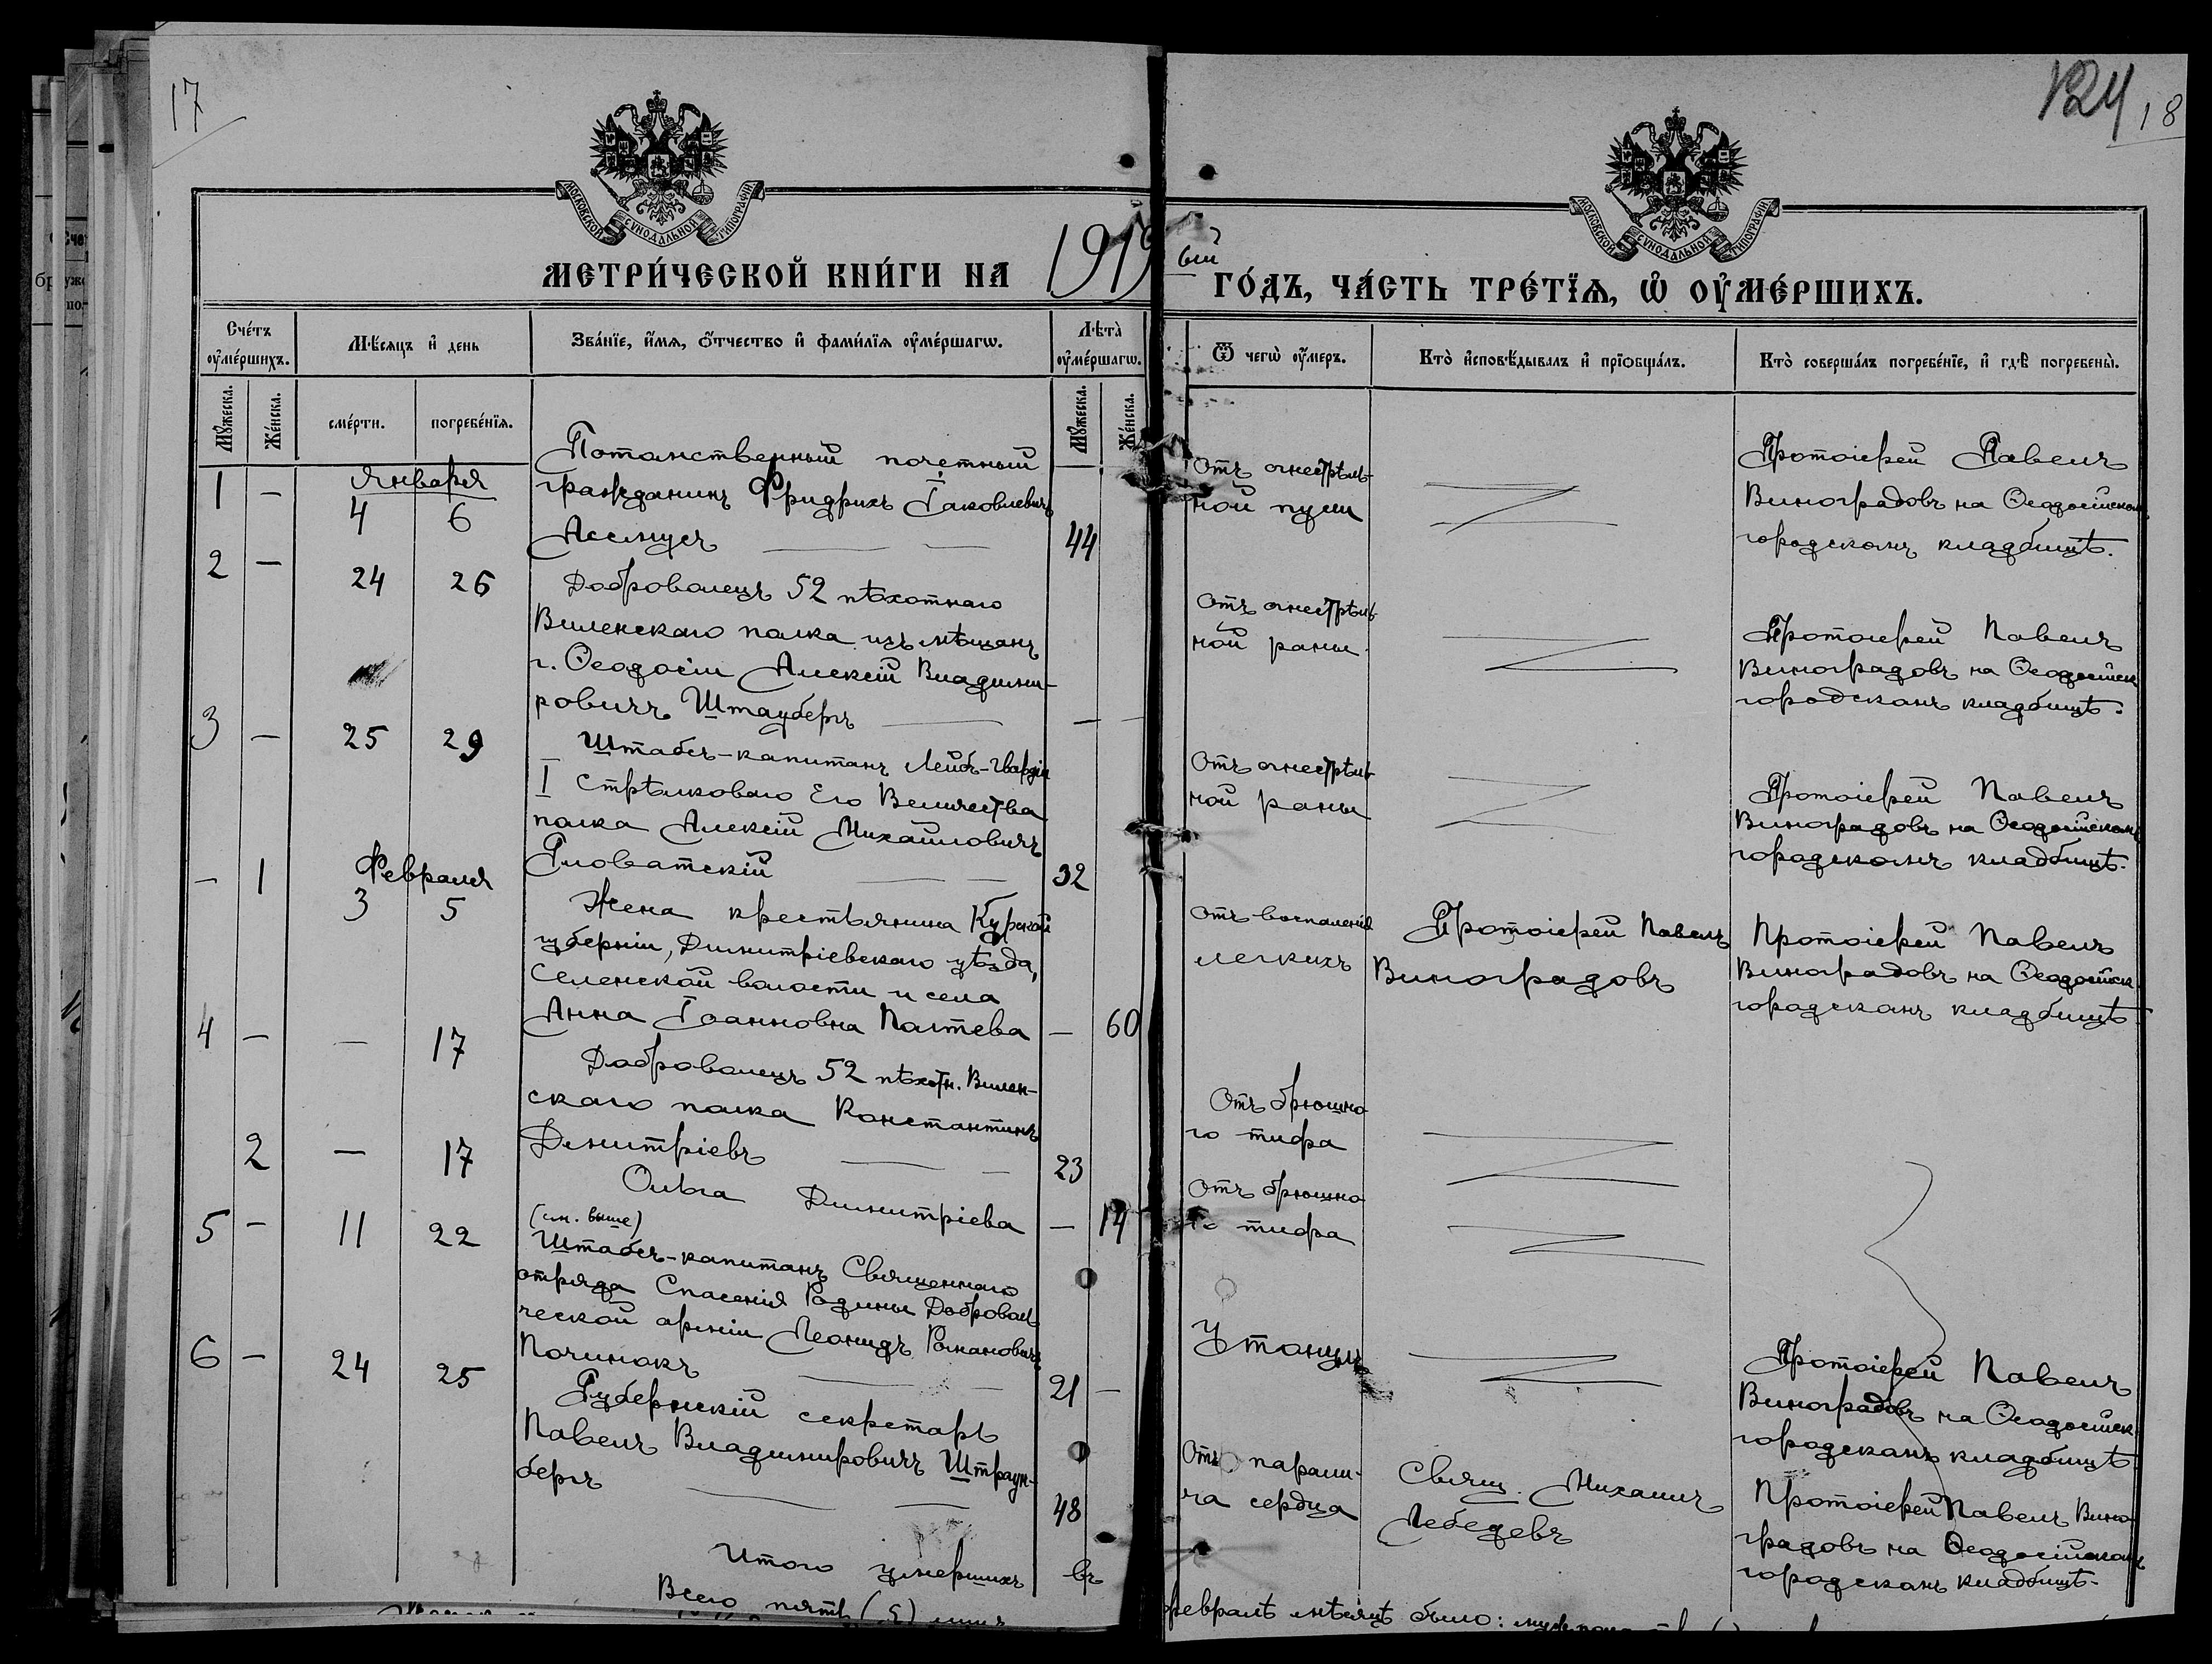 17
124 18
МОСКОВСКОЙ СѴНОДАЛЬНОЙ ТИПОГРАФІИ
МОСКОВСКОЙ СѴНОДАЛЬНОЙ ТИПОГРАФІИ
МЕТРИ́ЧЕСКОЙ КНИ́ГИ НА 1919 ый ГО́ДЪ, ЧА́СТЬ ТРЕ́ТЇѦ, Ѡ҆ ОУ҆МЕ́РШИХЪ.
Сче́тъ оу҆ме́ршихъ.
Мѣ́сяцъ и҆ день
Зва́нїе, и҆́мѧ, ѻ҆́тчество и҆ фами́лїѧ оу҆ме́ршагѡ.
Лѣта̀ оу҆ме́ршагѡ.
Ѿ чегѡ̀ оу҆́меръ.
Кто̀ и҆сповѣ́дывалъ и҆ прїѻбща́лъ.
Кто̀ соверша́лъ погребе́нїе, и҆ гдѣ̀ погребены̀.
Мꙋ́жеска.
Же́нска.
сме́рти.
погребе́нїѧ.
Мꙋ́жеска.
Же́нска.
1 — Января
4 6
Потомственный почетный
гражданинъ Фридрихъ Іаковлевичъ
44
Отъ огнестрѣль-
ной пули
Протоіерей Павелъ
Виноградовъ на Ѳеодосійском
городскомъ кладбищѣ.
2 — 24 26
Доброволецъ 52 пѣхотнаго
Виленскаго полка изъ мѣщанъ
г. Ѳеодосіи Алексій Владими-
ровичъ Штауберъ — —
Отъ огнестрѣль-
ной раны.
Протоіерей Павелъ
Виноградовъ на Ѳеодосійск
городскомъ кладбищѣ.
3 — 25 29
Штабсъ-капитанъ Лейбъ-Гвардіи
I Стрѣлковаго Его Величества
полка Алексій Михайловичъ
Гловатскій 32
Отъ огнестрѣль-
ной раны
Протоіерей Павелъ
Виноградовъ на Ѳеодосійскомъ
городскомъ кладбищѣ.
— 1 Февраля
3 5
Жена крестьянина Курской
губерніи, Димитріевскаго уѣзда,
Селенской волости и села
Анна Іоанновна Полтева — 60
Отъ воспаленія
легкихъ
Протоіерей Павелъ
Виноградовъ
Протоіерей Павелъ
Виноградовъ на Ѳеодосійск
городскомъ кладбищѣ
4 — — 17
Доброволецъ 52 пѣхотн. Вилен-
скаго полка Константинъ
Димитріевъ 23
Отъ брюшно-
го тифа
2 — 17
Ольга Димитріева — 14
Отъ брюшно-
го тифа
5 — 11 22
(см. выше)
Штабсъ-капитанъ Священнаго
отряда Спасенія Родины Доброволь
ческой арміи Леонидъ Романовичъ
Починокъ 21 —
Утонулъ
Протоіерей Павелъ
Виноградовъ на Ѳеодосійск
городскомъ кладбищѣ
6 — 24 25
Губернскій секретарь
Павелъ Владимировичъ Штраун-
бергъ 48
Отъ парали-
ча сердца
Свящ. Михаилъ
Лебедевъ
Протоіерей Павелъ Вино-
градовъ на Ѳеодосійскомъ
городскомъ кладбищѣ.
Итого умершихъ въ февралѣ мѣсяцѣ было:
Всего пять (5)